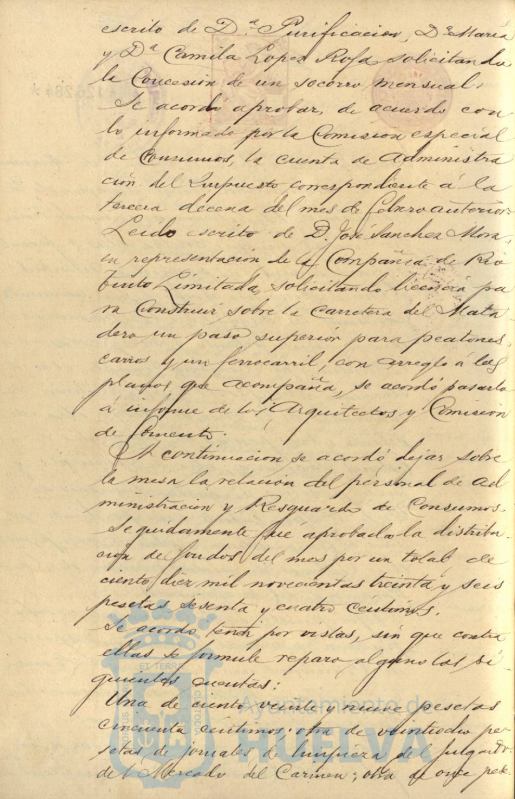 escrito de D.ª Purificacion, D.ª María
y D.ª Camila Lopez Rofa solicitando
la Concesión de un socorro mensual.
Se acordó aprobar, de acuerdo con
lo informado por la Comisión especial
de Consumos, la cuenta de Administra
ción del Impuesto correspondiente á la
tercera decena del mes de febrero anterior.
Leido escrito de D. José Sanchez Mora
en representación de la Compañía de Rio
tinto Limitada, solicitando licencia pa
ra Construir sobre la carretera del Mata
dero un paso superior para peatones,
carros y un ferrocarril, con arreglo á los
planos que acompaña, se acordó pasarlo
á informe de los Arquitectos y Comisión
de fomento.
A continuacion se acordó dejar sobre
la mesa la relación del personal de Ad
ministracion y Resguardo de Consumos.
Seguidamente fué aprobada la distribu
cion de fondos del mes por un total de
ciento diez mil novecientas treinta y seis
pesetas sesenta y cuatro céntimos.
Se acordó tener por vistas, sin que contra
ellas se formule reparo alguno las si
guientes cuentas:
Una de ciento veinte y nueve pesetas
cincuenta céntimos; otra de veintiocho pe
setas de jornales de limpieza del juzgado
del Mercado del Carmen; otra de once pese
ET TERRA
Ayuntamiento de
HUELVA